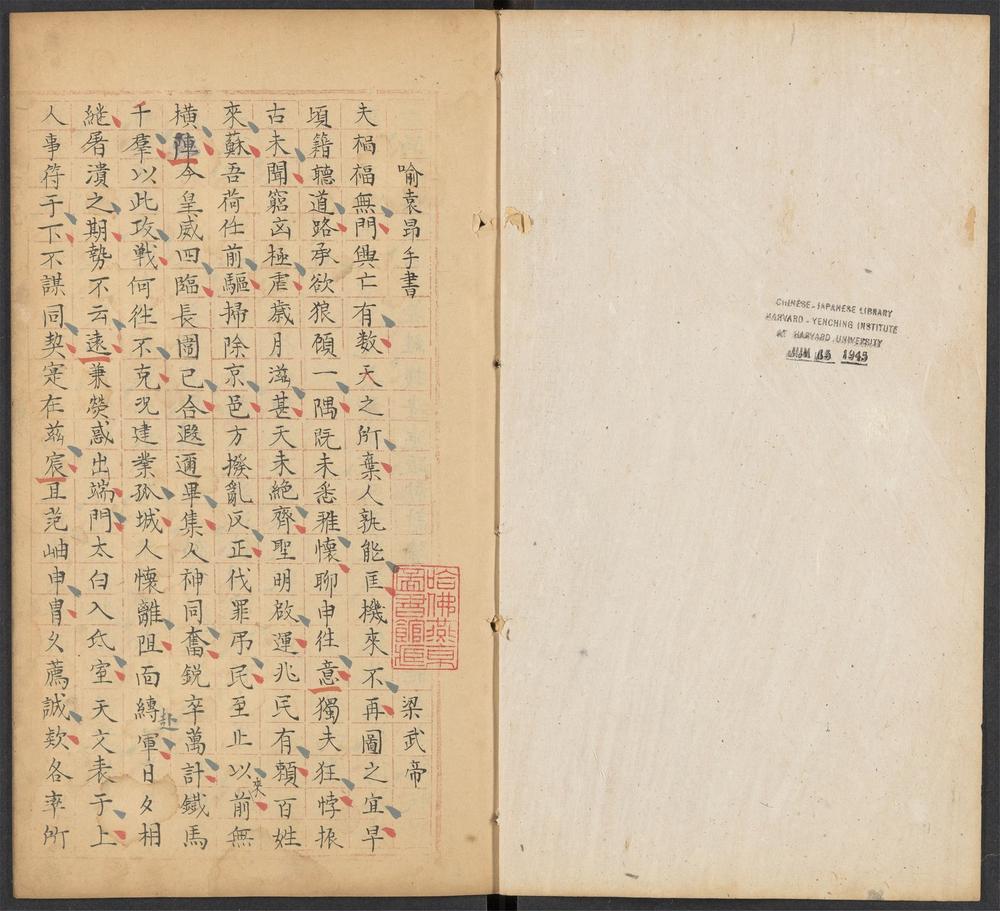 CHINESE-JAPANESE LIBRARY
HARVARD-YENCHING INSTITUTE
AT HARVARD UNIVERSITY
JUN 15 1945
喻袁昂手書 梁武帝
哈佛燕京
圖書館藏
夫禍福無門興亡有数天之所棄人孰能匡機來不再圖之宜早
頃籍聽道路承欲狼顧一隅既未悉雅懷聊申往意獨夫狂悖振
古未聞窮凶極虐歲月滋甚天未絶齊聖明啟運兆民有賴百姓
來蘇吾荷任前驅掃除京邑方撥亂反正伐罪吊民至止以來前無
橫陣今皇威四臨長圍已合遐邇畢集人神同奮鋭卒萬計鐵馬
千羣以此攻戰何往不克况建業孤城人懷離阻面縛赴軍日夕相
継屠潰之期勢不云遠兼熒惑出端門太白入氐室天文表于上
人事符于下不謀同契寔在茲宸且范岫申胄久薦誠欵各率所